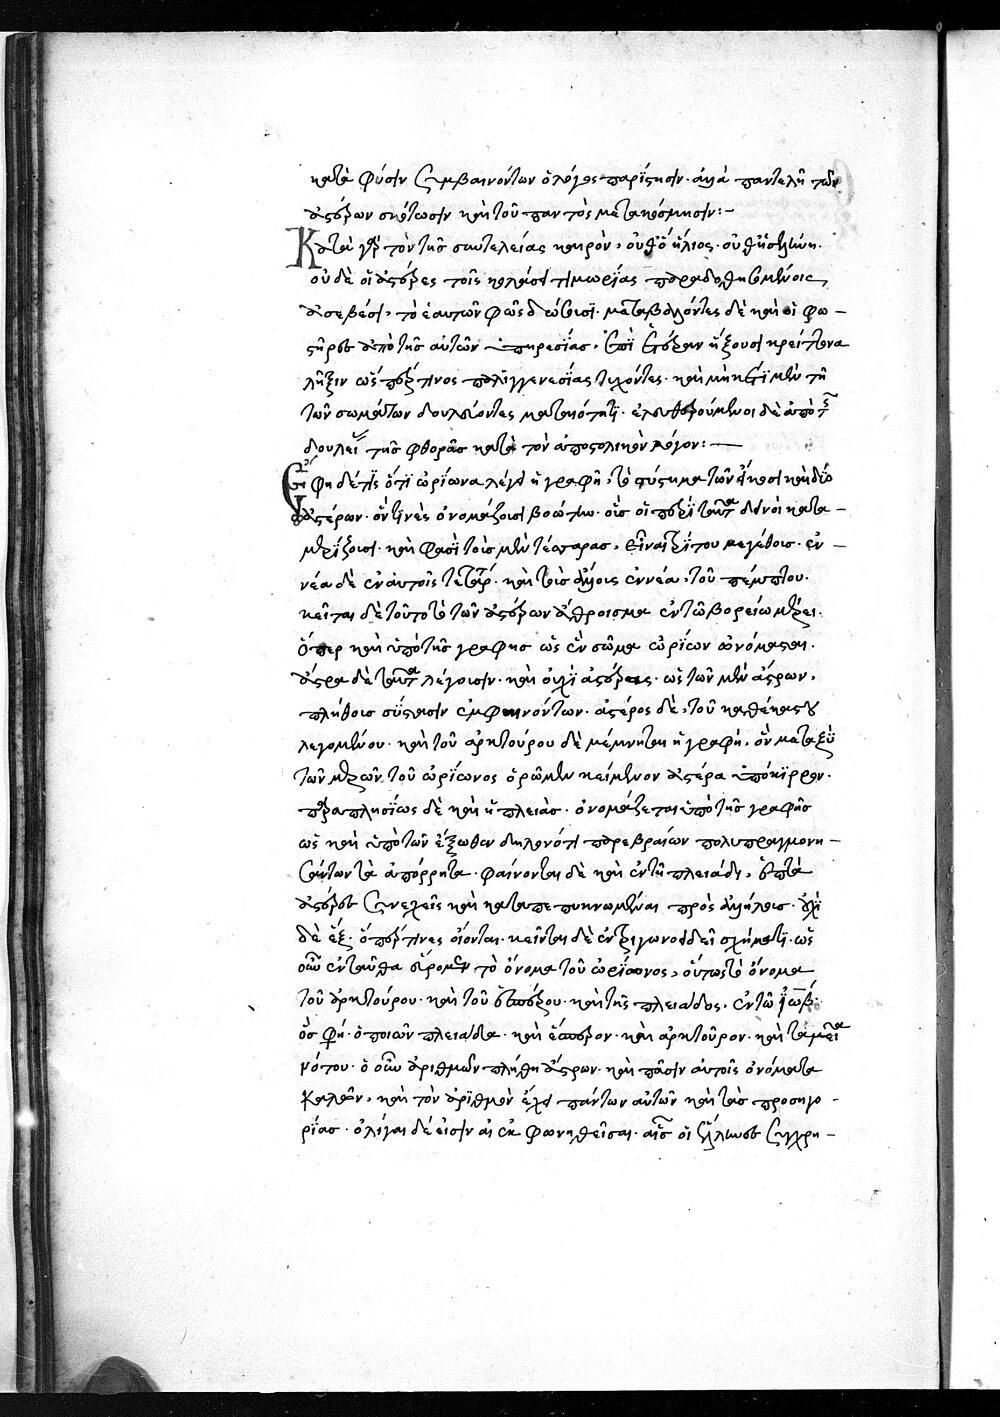 κατὰ φύσιν συμβαινόντων ὁ λόγος παρίστησιν. ἀλλὰ παντελῆ τῶν
ἀστέρων σκότωσιν καὶ τοῦ παντὸς μετακόσμησιν:-
Κατὰ γὰρ τὸν τῆς συντελείας καιρὸν, οὐθ' ὁ ἥλιος. οὐθ' ἡ σελήνη.
οὐδὲ οἱ ἀστέρες τοῖς κολάσει τιμωρίας παραδοθησομένοις
ἀσεβέσι, τὸ ἑαυτῶν φῶς δώσουσι. μεταβαλόντες δὲ καὶ οἱ φω-
στῆρες ἀπὸ τῆς αὐτῶν ὑπηρεσίας, ἐπὶ ἑτέραν ἥξουσι κρείττονα
λῆξιν ὡς περί τινος παλιγγενεσίας τυχόντες. καὶ μηκέτι μὲν τῇ
τῶν σωμάτων δουλεύοντες ματαιότητι. ἐλευθερούμενοι δὲ ἀπὸ τῆς
δουλείας τῆς φθορᾶς κατὰ τὸν ἀποστολικὸν λόγον:-
φη δέ τις ὅτι ὠρίωνα λέγει ἡ γραφὴ, τὸ σύστημα τῶν εἴκοσι καὶ δύο
ἀστέρων. ὅντινες ὀνομάζουσι βοώτω. οἷς οἱ περὶ ταῦτα δεινοὶ κατα-
μερίζουσι. καὶ φασὶ τοὺς μὲν τέσσαρας, εἶναι τρίτου μεγέθους. ἐν-
νέα δὲ ἐν αὐτοῖς τετάρτου. καὶ τοὺς ἄλλους ἐννέα, τοῦ πέμπτου.
κεῖται δὲ τοῦτο τὸ τῶν ἀστέρων ἄθροισμα ἐν τῷ βορείω μέρει.
ὅπερ καὶ ὑπὸ τῆς γραφῆς ὡς ἓν σῶμα ὠρίων ὠνόμασται.
ἄστρα δὲ ταῦτα λέγουσιν. καὶ οὐχὶ ἀστέρες. ὡς τῶν μὲν ἄστρων,
πλήθους σύστασιν ἐμφαινόντων. ἀστέρος δὲ, τοῦ καθέκαστου
λεγομένου. καὶ τοῦ ἀρκτούρου δὲ μέμνηται ἡ γραφὴ, ὃν μεταξὺ
τῶν μερῶν τοῦ ὠρίωνος ὁρῶμεν κείμενον ἀστέρα ὑπόκιρρον.
παραπλησίως δὲ καὶ ἡ πλειὰς. ὀνομάζεται ὑπὸ τῆς γραφῆς
ὡς καὶ ὑπὸ τῶν ἔξωθεν δηλονότι παρεβραίων πολυπραγμονη-
σάντων τὰ ἀπόρρητα. φαίνονται δὲ καὶ ἐν τῇ πλειάδι, ἑπτὰ
ἀστέρες συνεχεῖς καὶ καταπεπυκνωμέναι πρὸς ἀλλήλους. οὐχὶ
δὲ ἕξ. ὅπερ τινες οἴονται. κεῖνται δὲ ἐν τριγωνοειδεῖ σχήματι. ὡς
οὖν ἐνταῦθα εὕρομεν τὸ ὄνομα τοῦ ὠρίωνος, οὕτως τὸ ὄνομα
τοῦ ἀρκτούρου. καὶ τοῦ ἑσπέρου. καὶ τῆς πλειάδος, ἐν τῷ ἰώβ.
ὅς φη. ὁ ποιῶν πλειάδα. καὶ ἕσπερον. καὶ ἀρκτοῦρον. καὶ ταμεῖα
νότου. ὁ οὖν ἀριθμῶν πλήθη ἄστρων. καὶ πᾶσιν αὐτοῖς ὀνόματα
καλῶν, καὶ τὸν ἀριθμὸν ἔχει πάντων αὐτῶν καὶ τὰς προσηγο-
ρίας. ὀλίγαι δέ εἰσιν αἱ ἐκφωνηθεῖσαι. αἷς οἱ ἕλληνες συγχρη-